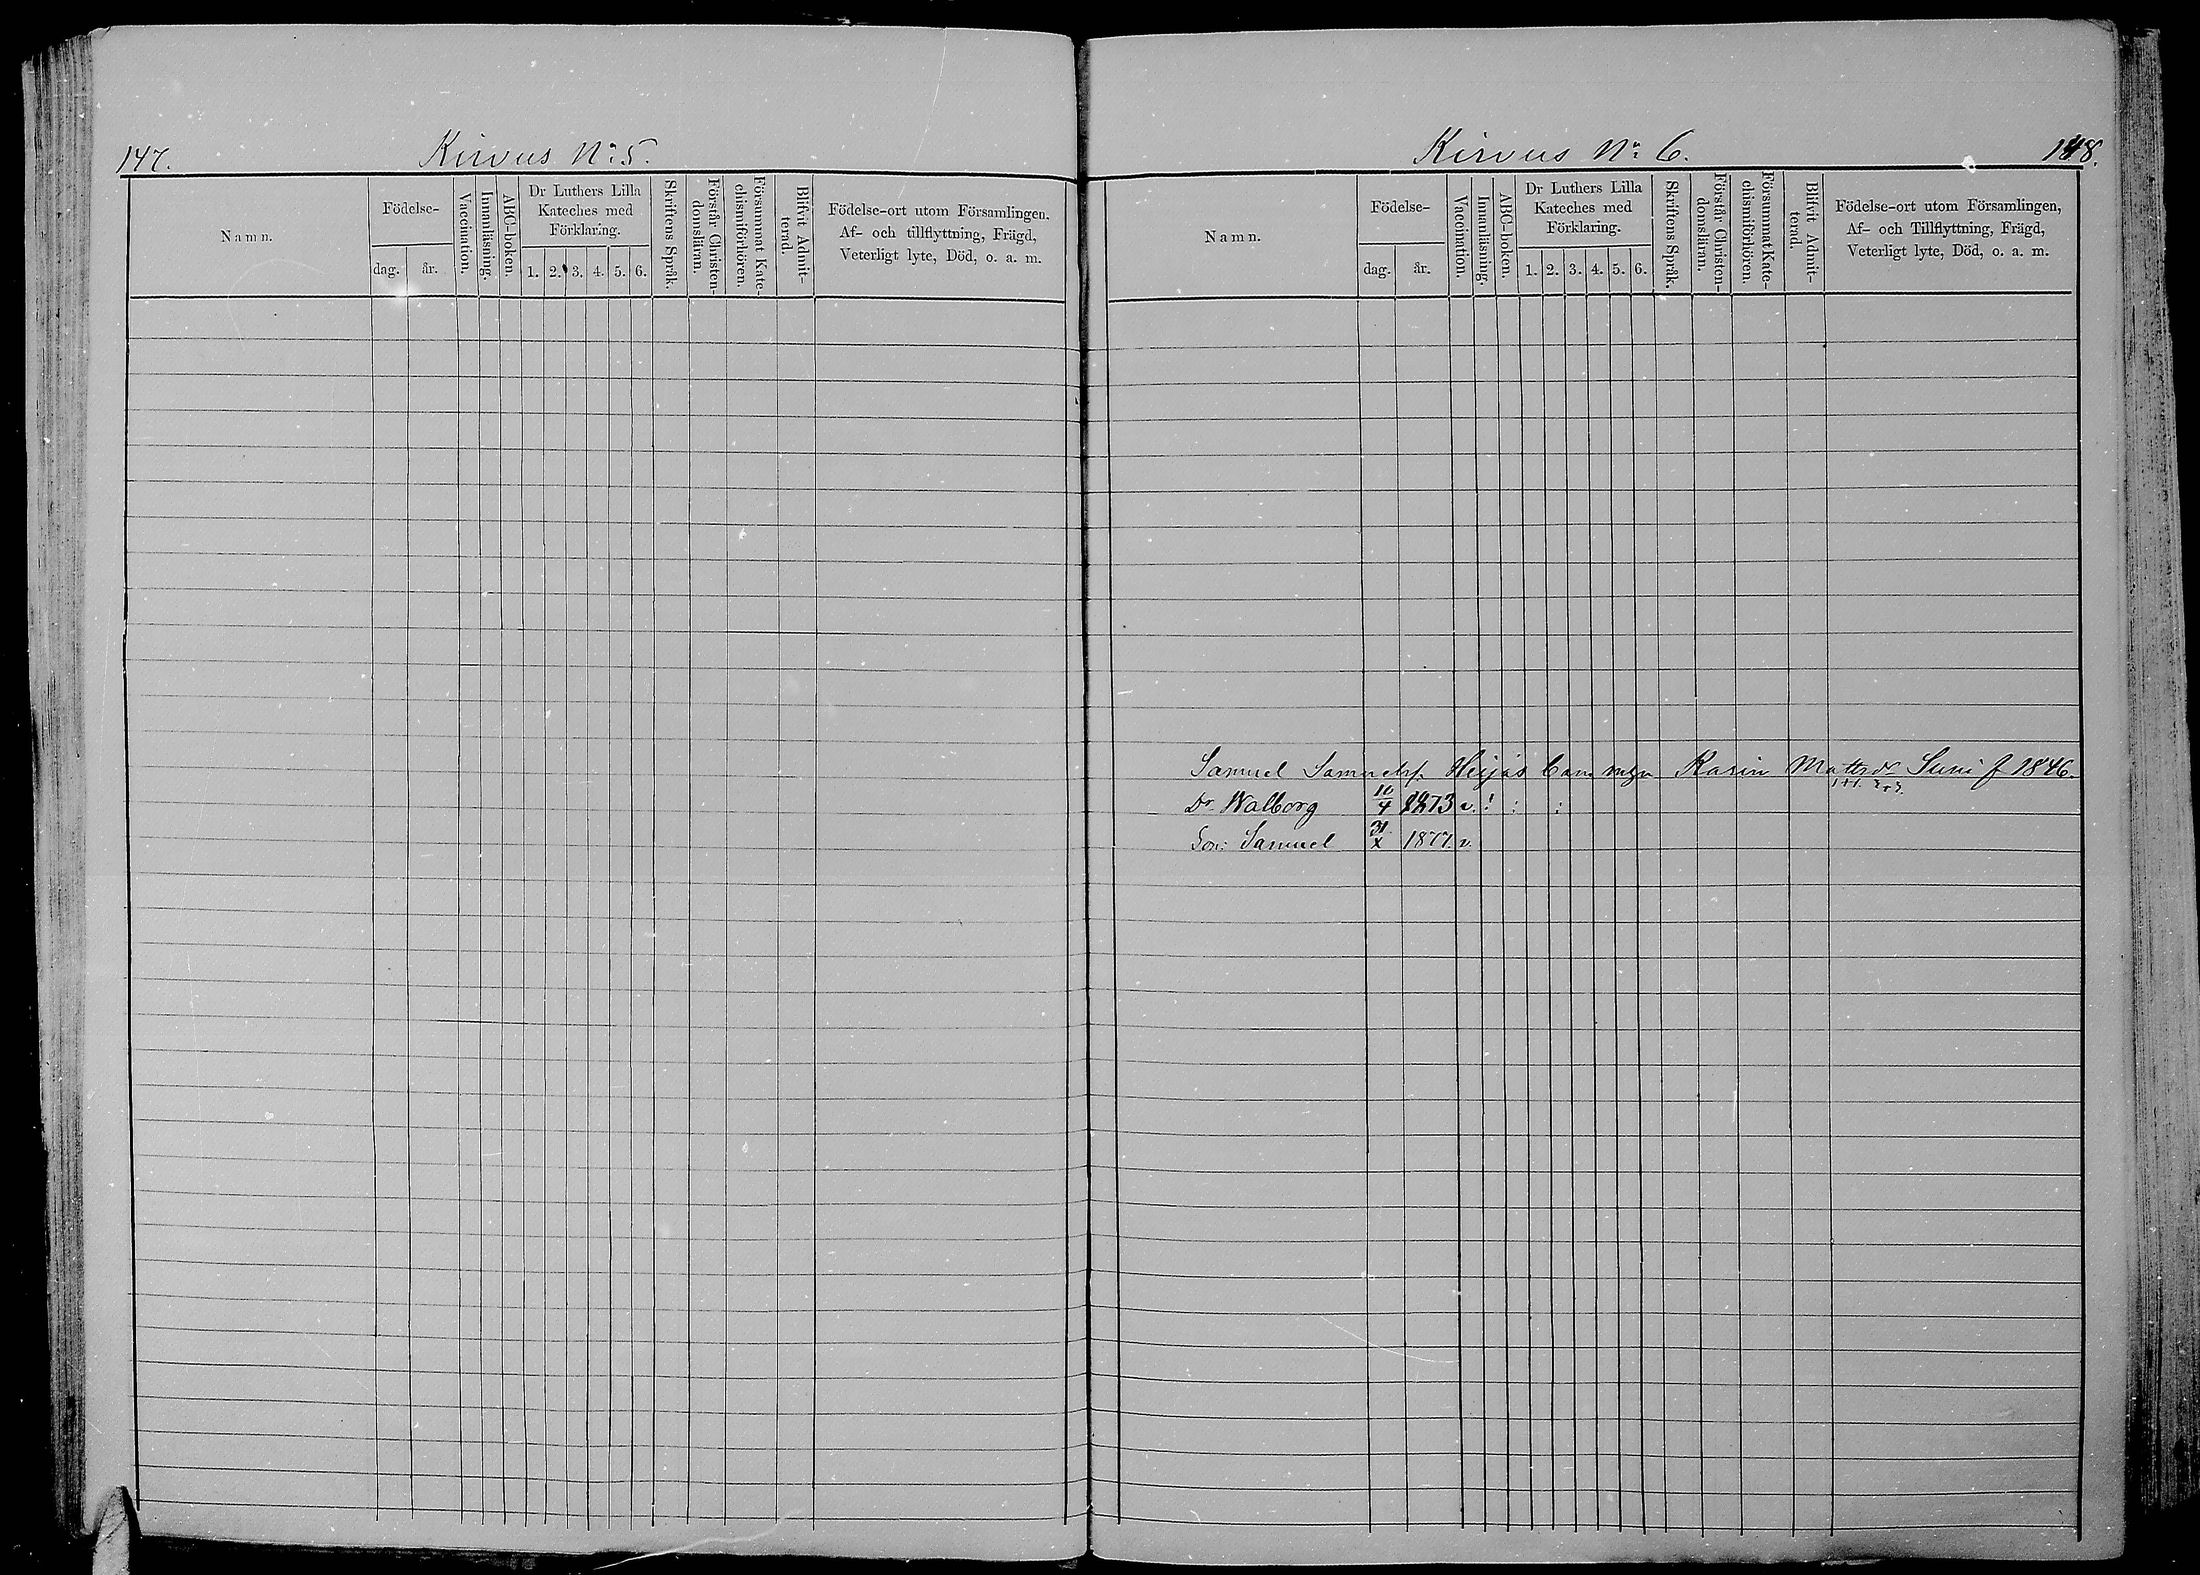 147.
Kirvus No 5.
Namn.
Födelse-
dag. år.
Vaccination.
Innanläsning.
ABC-boken.
Dr Luthers Lilla
Kateches med
Förklaring.
1. 2. 3. 4. 5. 6.
Skriftens Språk.
Förstår Christen-
domsläran.
Försummat Kate-
chismiförhören.
Blifvit Admit-
terad.
Födelse-ort utom Församlingen.
Af- och tillflyttning, Frägd,
Veterligt lyte, Död, o. a. m.
Kirvus No 6.
148.
Namn.
Födelse-
dag. år.
Vaccination.
Innanläsning.
ABC-boken.
Dr Luthers Lilla
Kateches med
Förklaring.
1. 2. 3. 4. 5. 6.
Skriftens Språk.
Förstår Christen-
domsläran.
Försummat Kate-
chismiförhören.
Blifvit Admit-
terad.
Födelse-ort utom Församlingen,
Af- och Tillflyttning, Frägd,
Veterligt lyte, Död, o. a. m.
Samuel Samuelsf. Karin Mattsdr Suni f 1846.
Dr. Walborg 10/4 1873 v. ! : :
Son: Samuel 31/X 1877. v.